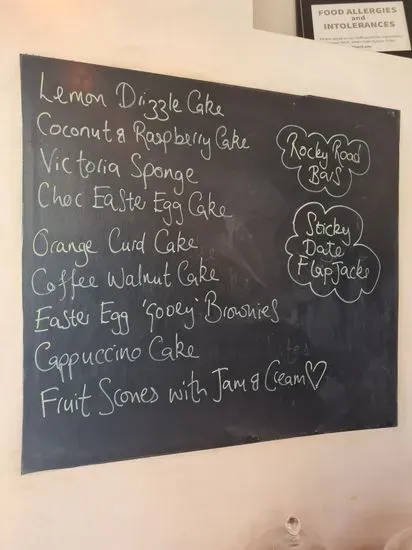 FOOD ALLERGIES
and
INTOLERANCES
Lemon Drizzle Cake
Coconut & Raspberry Cake
Victoria Sponge
Choc Easte Egg Cake
Orange Curd Cake
Coffee Walnut Cake
Easter Egg 'Gooey' Brownies
Cappuccino Cake
Fruit Scones with Jam & Cream♡
Rocky Road
Bars
Sticky
Date
FlapJacks